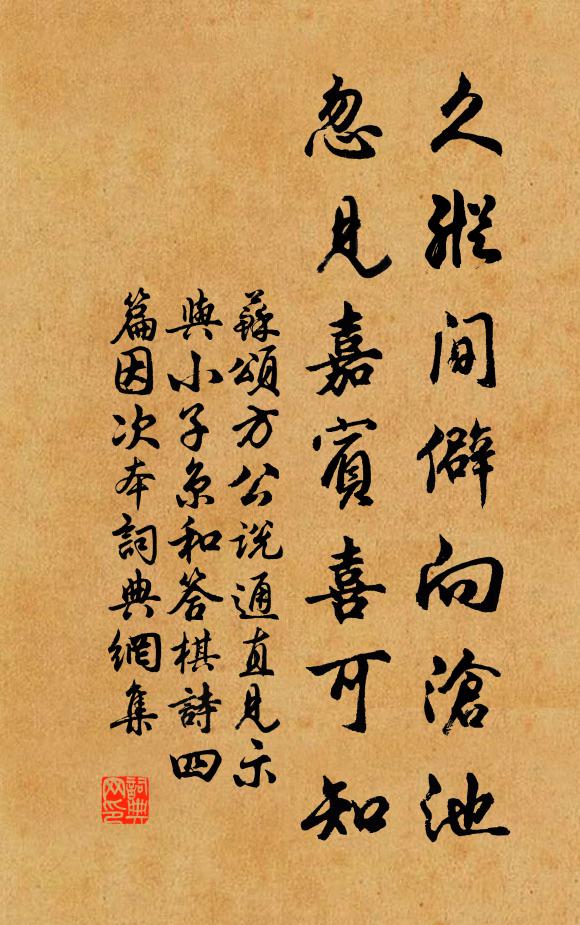 久縱閒僻向滄池
忽見嘉賓喜可知
蘇頌方公説通直見示
與小子京和答棋詩四
篇因次本詞典網集
詞典网印